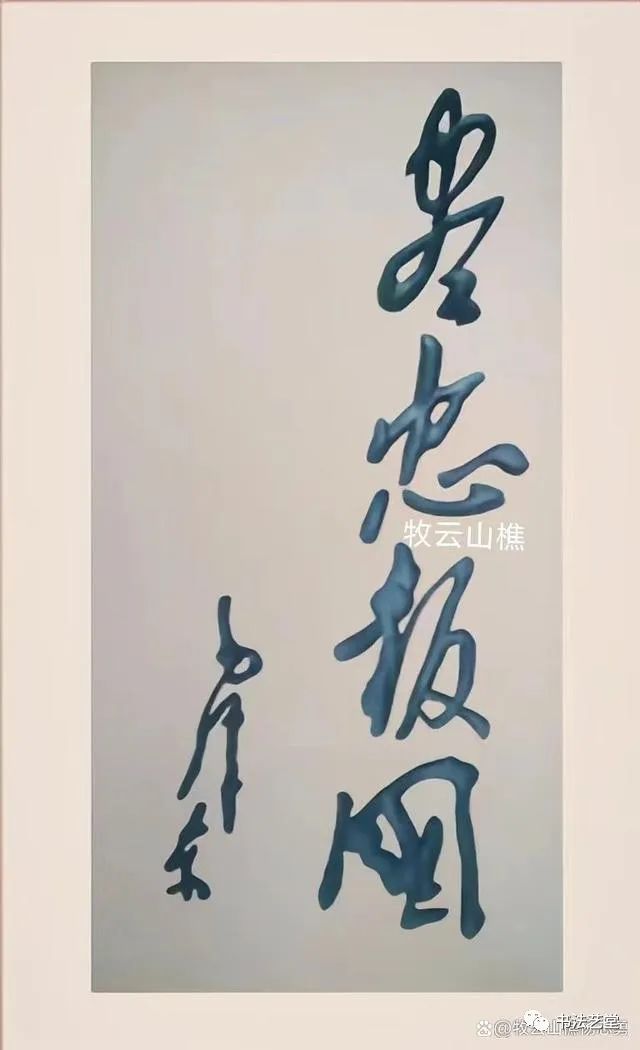 尽忠报国
毛泽东
牧云山樵
书法艺堂
@牧云山樵杨忠勇